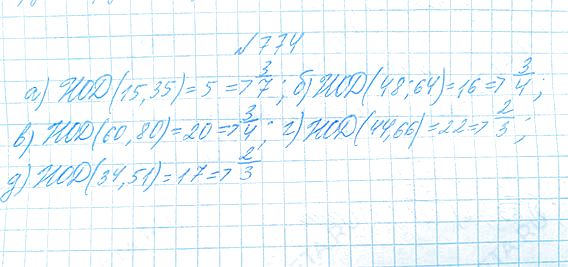 №774
а) НОД(15,35)=5 => 3/7; б) НОД(48;64)=16=> 3/4;
в) НОД(60,80)=20=> 3/4; г) НОД(44,66)=22=> 2/3;
д) НОД(34,51)=17=> 2/3